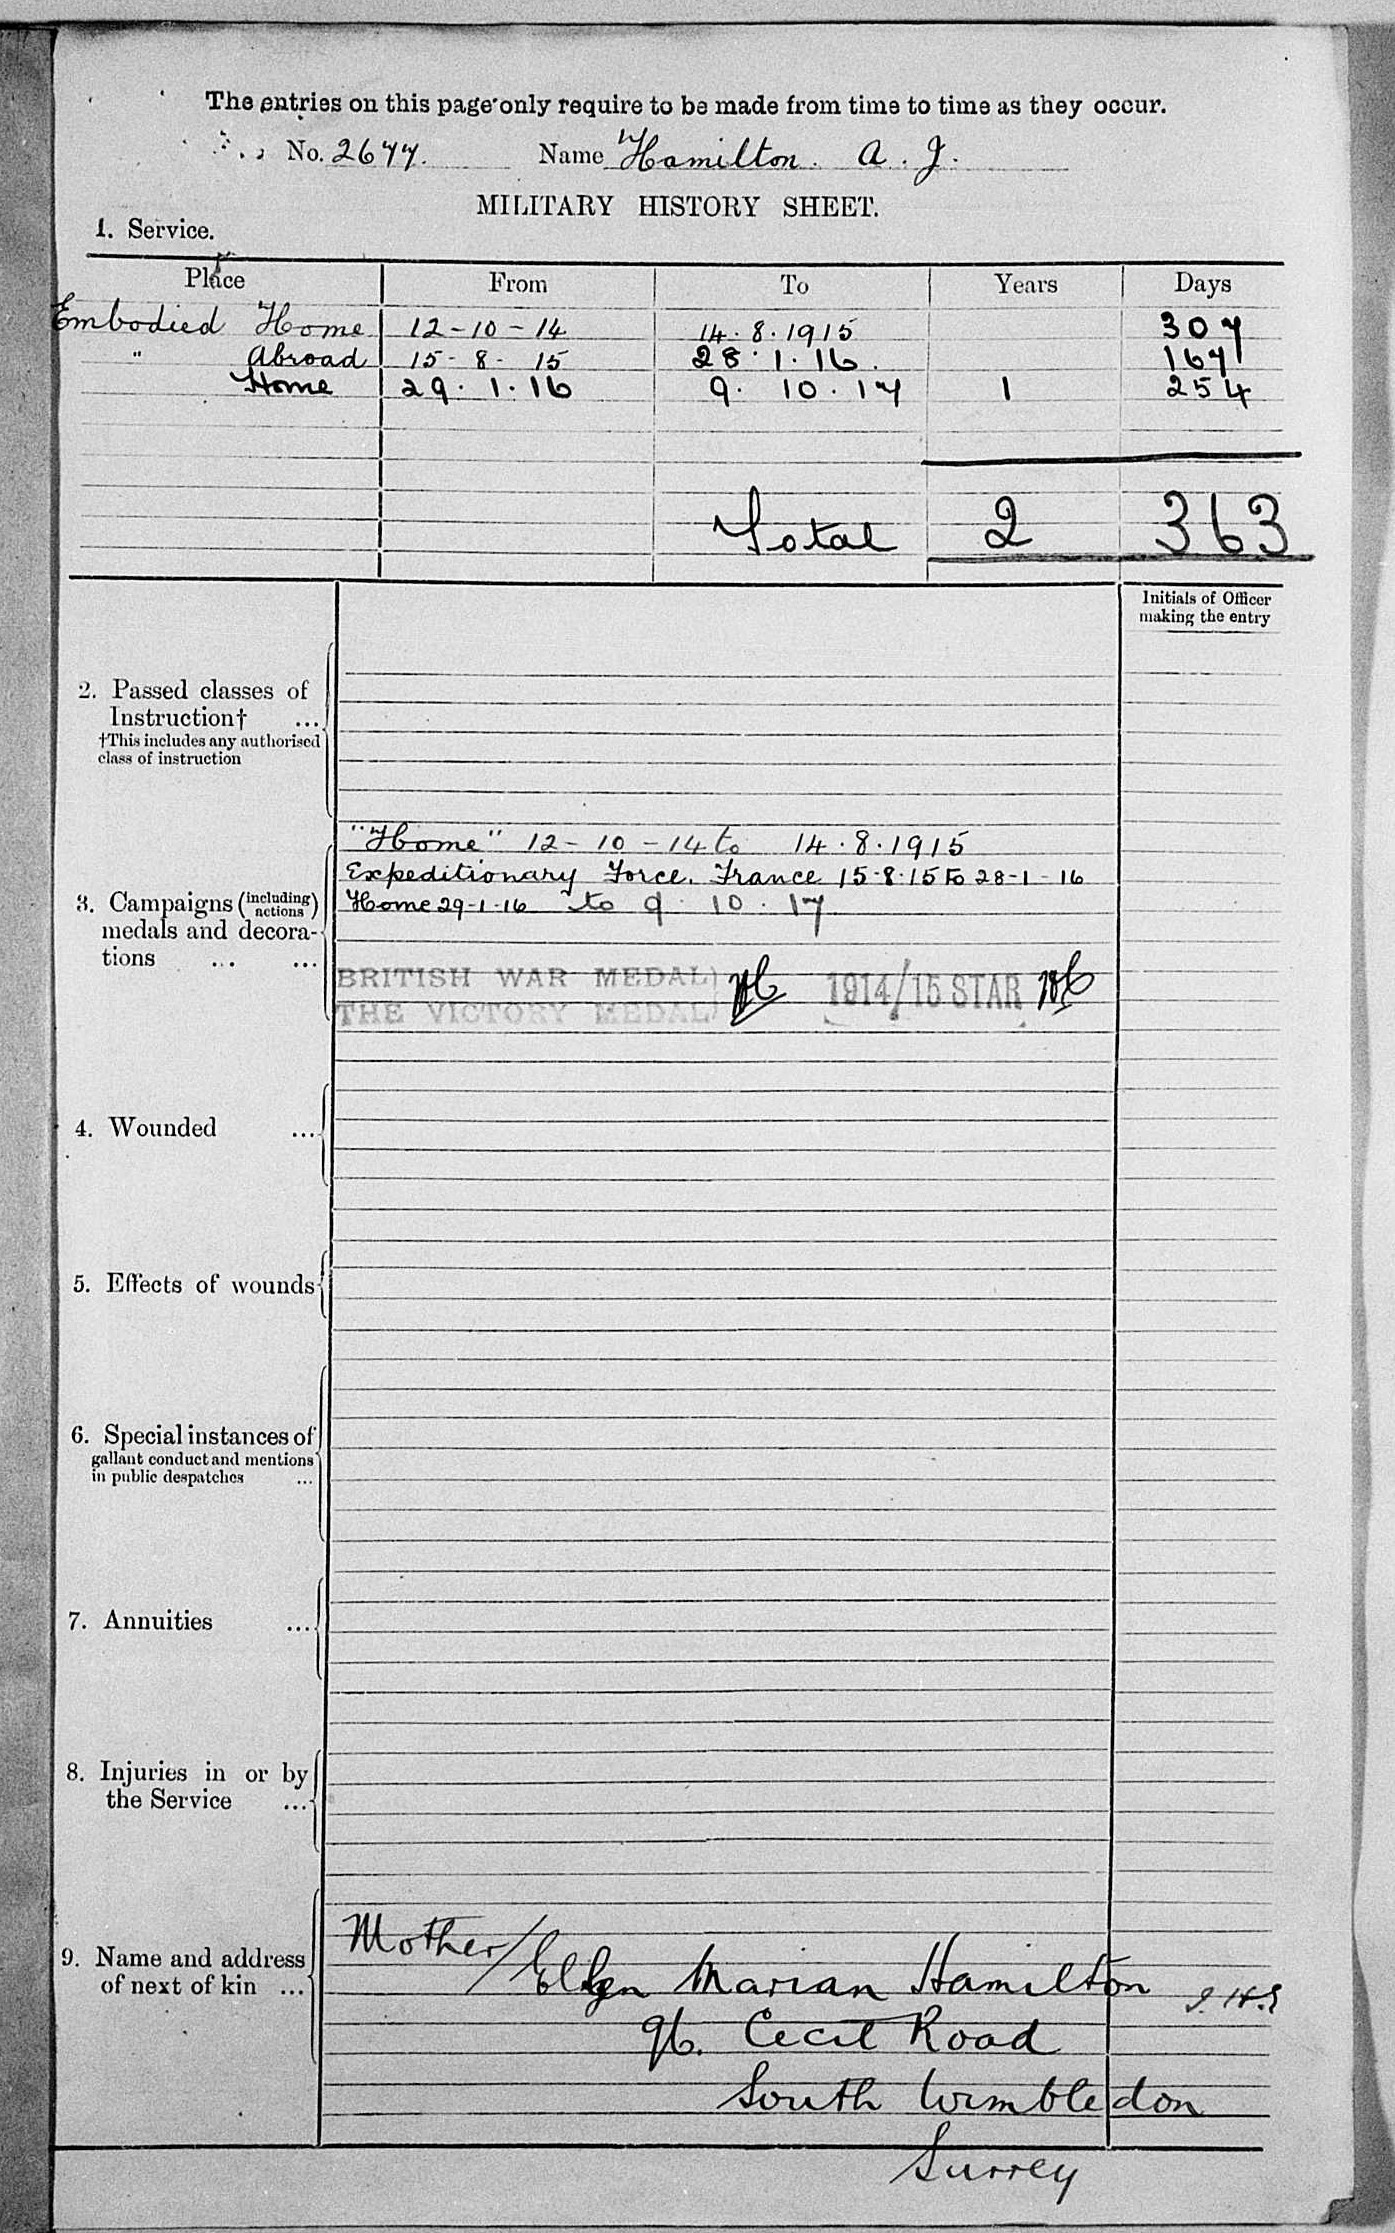 The entries on this page only require to be made from time to time as they occur.
No. 2677. Name Hamilton. A. J.
MILITARY HISTORY SHEET.
1. Service.
Place From To Years Days
Embodied Home 12-10-14 14.8.1915 307
" Abroad 15-8-15 28.1.16. 167
Home 29.1.16 9.10.17 1 254
Total 2 363
Initials of Officer
making the entry
2. Passed classes of
Instruction† ...
†This includes any authorised
class of instruction
"Home" 12-10-14 to 14.8.1915
Expeditionary Force. France 15-8-15 to 28-1-16
3. Campaigns (including actions) Home 29-1-16 to 9.10.17
medals and decora-
tions ... ...
BRITISH WAR MEDAL 1914/15 STAR
THE VICTORY MEDAL
4. Wounded ...
5. Effects of wounds
6. Special instances of
gallant conduct and mentions
in public despatches ...
7. Annuities ...
8. Injuries in or by
the Service ...
9. Name and address
of next of kin ...
Mother/ Ellen Marian Hamilton
96. Cecil Road
South Wimbledon
Surrey